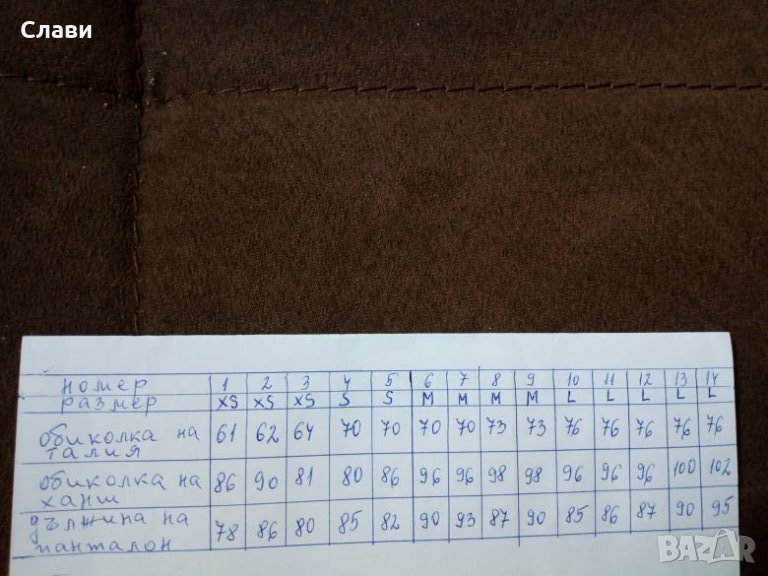 Слави
номер 1 2 3 4 5 6 7 8 9 10 11 12 13 14
размер XS XS XS S S M M M M L L L L L
обиколка на талия 61 62 64 70 70 70 70 73 73 76 76 76 76 76
обиколка на ханш 86 90 81 80 86 96 96 98 98 96 96 96 100 102
дължина на панталон 78 86 80 85 82 90 93 87 90 85 86 87 90 95
BAZAR